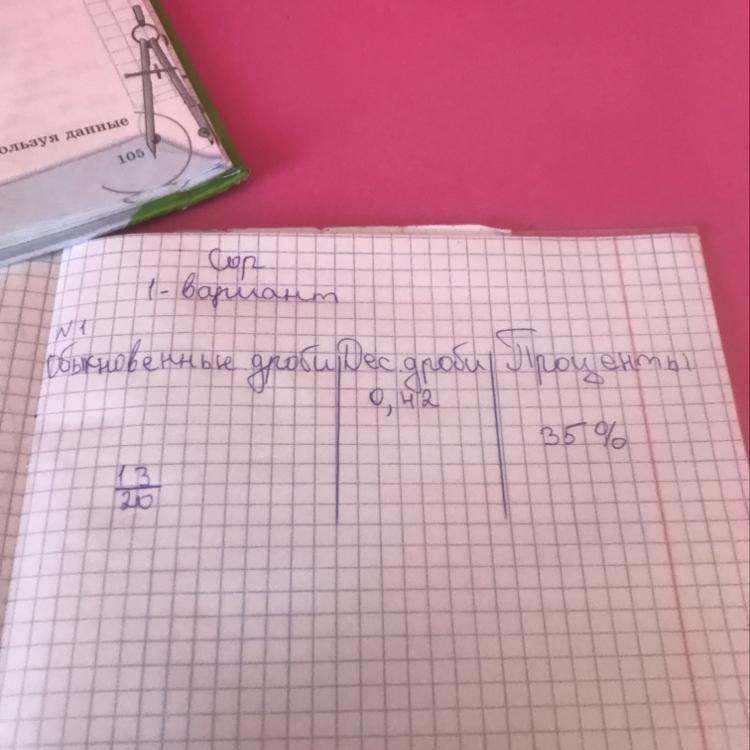 ользуя данные
105
Сор
1-вариант
N1
Обыкновенные дроби Дес. дроби Проценты
0,42
35%
13
20